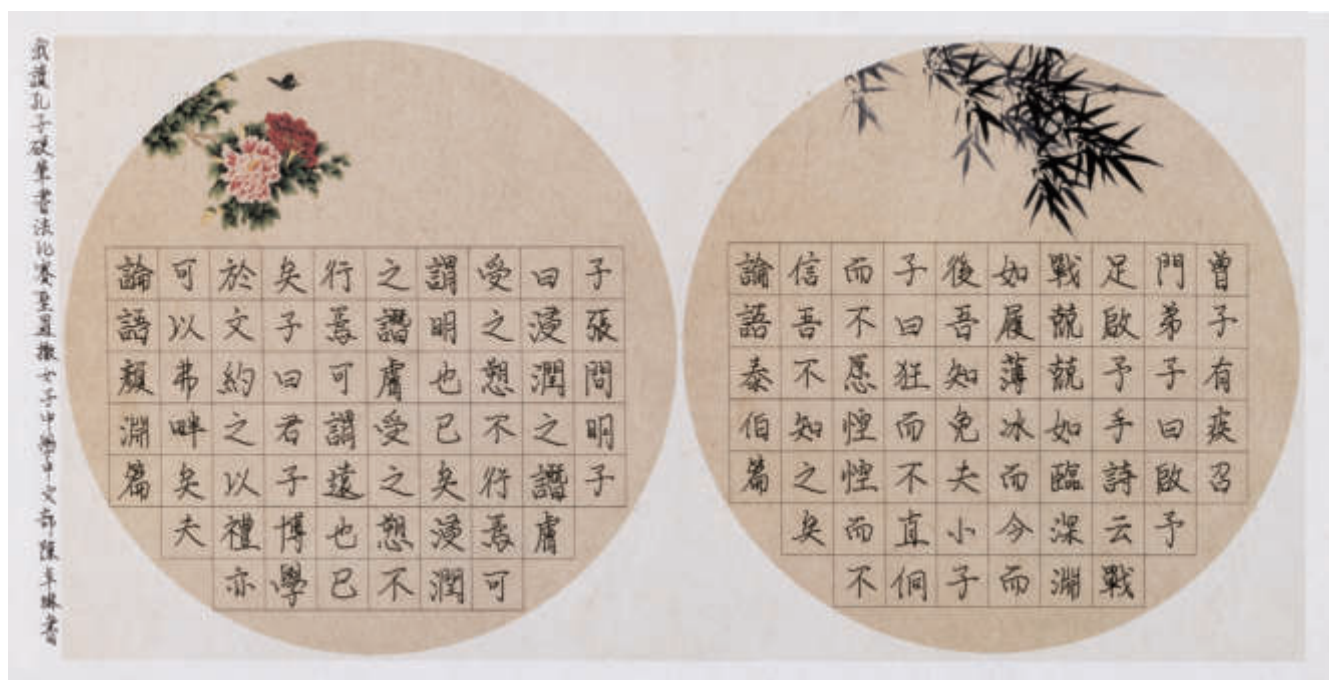 曾子有疾召
門弟子曰啟予
足啟予手詩云戰
戰兢兢如臨深淵
如履薄冰而今而
後吾知免夫小子
子曰狂而不直侗
而不愿悾悾而不
信吾不知之矣
論語泰伯篇
子張問明子
曰浸潤之譖膚
受之愬不行焉可
謂明也已矣浸潤
之譖膚受之愬不
行焉可謂遠也已
矣子曰君子博學
於文約之以禮亦
可以弗畔矣夫
論語顏淵篇
我讀孔子硬筆書法比賽聖羅撒女子中學中文部陳琳書